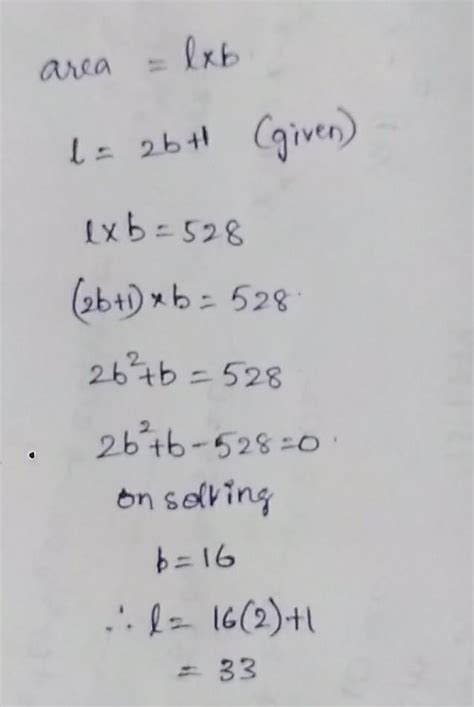 area = l×b
l = 2b+1 (given)
l×b = 528
(2b+1)×b = 528.
2b²+b = 528
2b²+b-528=0.
on solving
b=16
∴ l = 16(2)+1
= 33